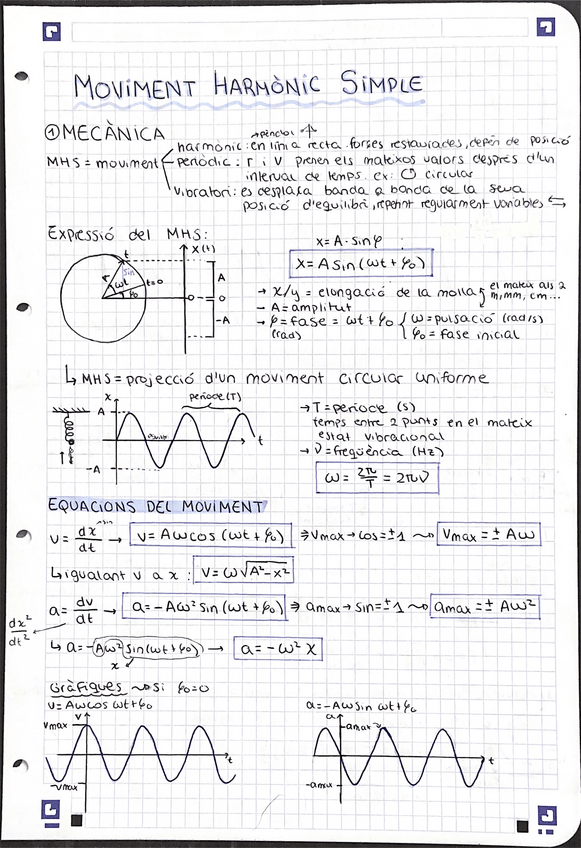 MOVIMENT HARMÒNIC SIMPLE
① MECÀNICA
MHS = moviment
→ pèndol
harmònic: en línia recta. forses restaurades, depèn de posició
periòdic: r i v prenen els mateixos valors després d'un
interval de temps. ex: circular
vibratori: es desplaça banda a banda de la seva
posició d'equilibri, repetint regularment variables ⇆
Expressió del MHS:
x = A · sin φ
x = A sin (ωt + φ₀)
t
sin
r
ωt
φ₀
t=0
x(t)
A
0
0
-A
→ x/y = elongació de la molla
el mateix als 2
m, mm, cm...
→ A = amplitut
→ φ = fase = ωt + φ₀
(rad)
ω = pulsació (rad/s)
φ₀ = fase inicial
↳ MHS = projecció d'un moviment circular uniforme
x
A
-A
període (T)
t
→ T = període (s)
temps entre 2 punts en el mateix
estat vibracional
→ ν = freqüència (Hz)
ω = 2π/T = 2πν
EQUACIONS DEL MOVIMENT
v = dx/dt → v = Aω cos (ωt + φ₀) ⇒ vmax → cos = ±1 ⇝ Vmax = ± Aω
↳ igualant v a x: v = ω√A²-x²
a = dv/dt → a = -Aω² sin (ωt + φ₀) ⇒ amax → sin = ±1 ⇝ amax = ± Aω²
dx²/dt²
↳ a = -Aω² sin(ωt + φ₀) → a = -ω² x
x
Gràfiques ⇝ si φ₀=0
v = Aω cos ωt + φ₀
v
vmax
-vmax
t
a = -Aω sin ωt + φ₀
a
amax
-amax
t